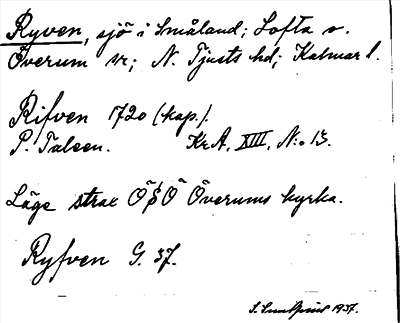 Ryven, sjö i Småland; Lofta o.
Överum sr; N. Tjusts hd; Kalmar l.
Rifven 1720 (kap.).
P. Tulsen. Kr A, XIII, N:o 13.
Läge strax ÖSÖ Överums kyrka.
Ryfven G. 37.
1937.